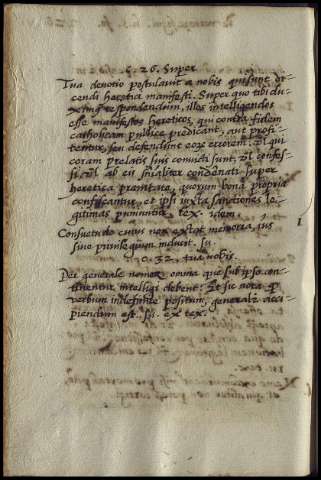 c. 26. Super
Tua devotio postulavit a nobis qui sunt di-
cendi heretici manifesti. Super quo tibi du-
ximus respondendum, illos intelligendos
esse manifestos hereticos, qui contra fidem
catholicam publice predicant, aut profi-
tentur, seu defendunt eorum errorem: Vel qui
coram prelatis suis convicti sunt, vel confes-
si, vel ab eis sententialiter condenati super
heretica pravitate, quorum bona propria
confiscantur, et ipsi iuxta sanctiones le-
gitimas puniuntur. tex. idem
Consuetudo cuius non extat memoria, ius
sive privilegium inducit. su.
c. 32. tua nobis.
Per generale nomen omnia que sub ipso con-
tinentur intelligi debent: Et sic nota quod
verbum indefinite positum, generaliter acci-
piendum est. su. ex tex.